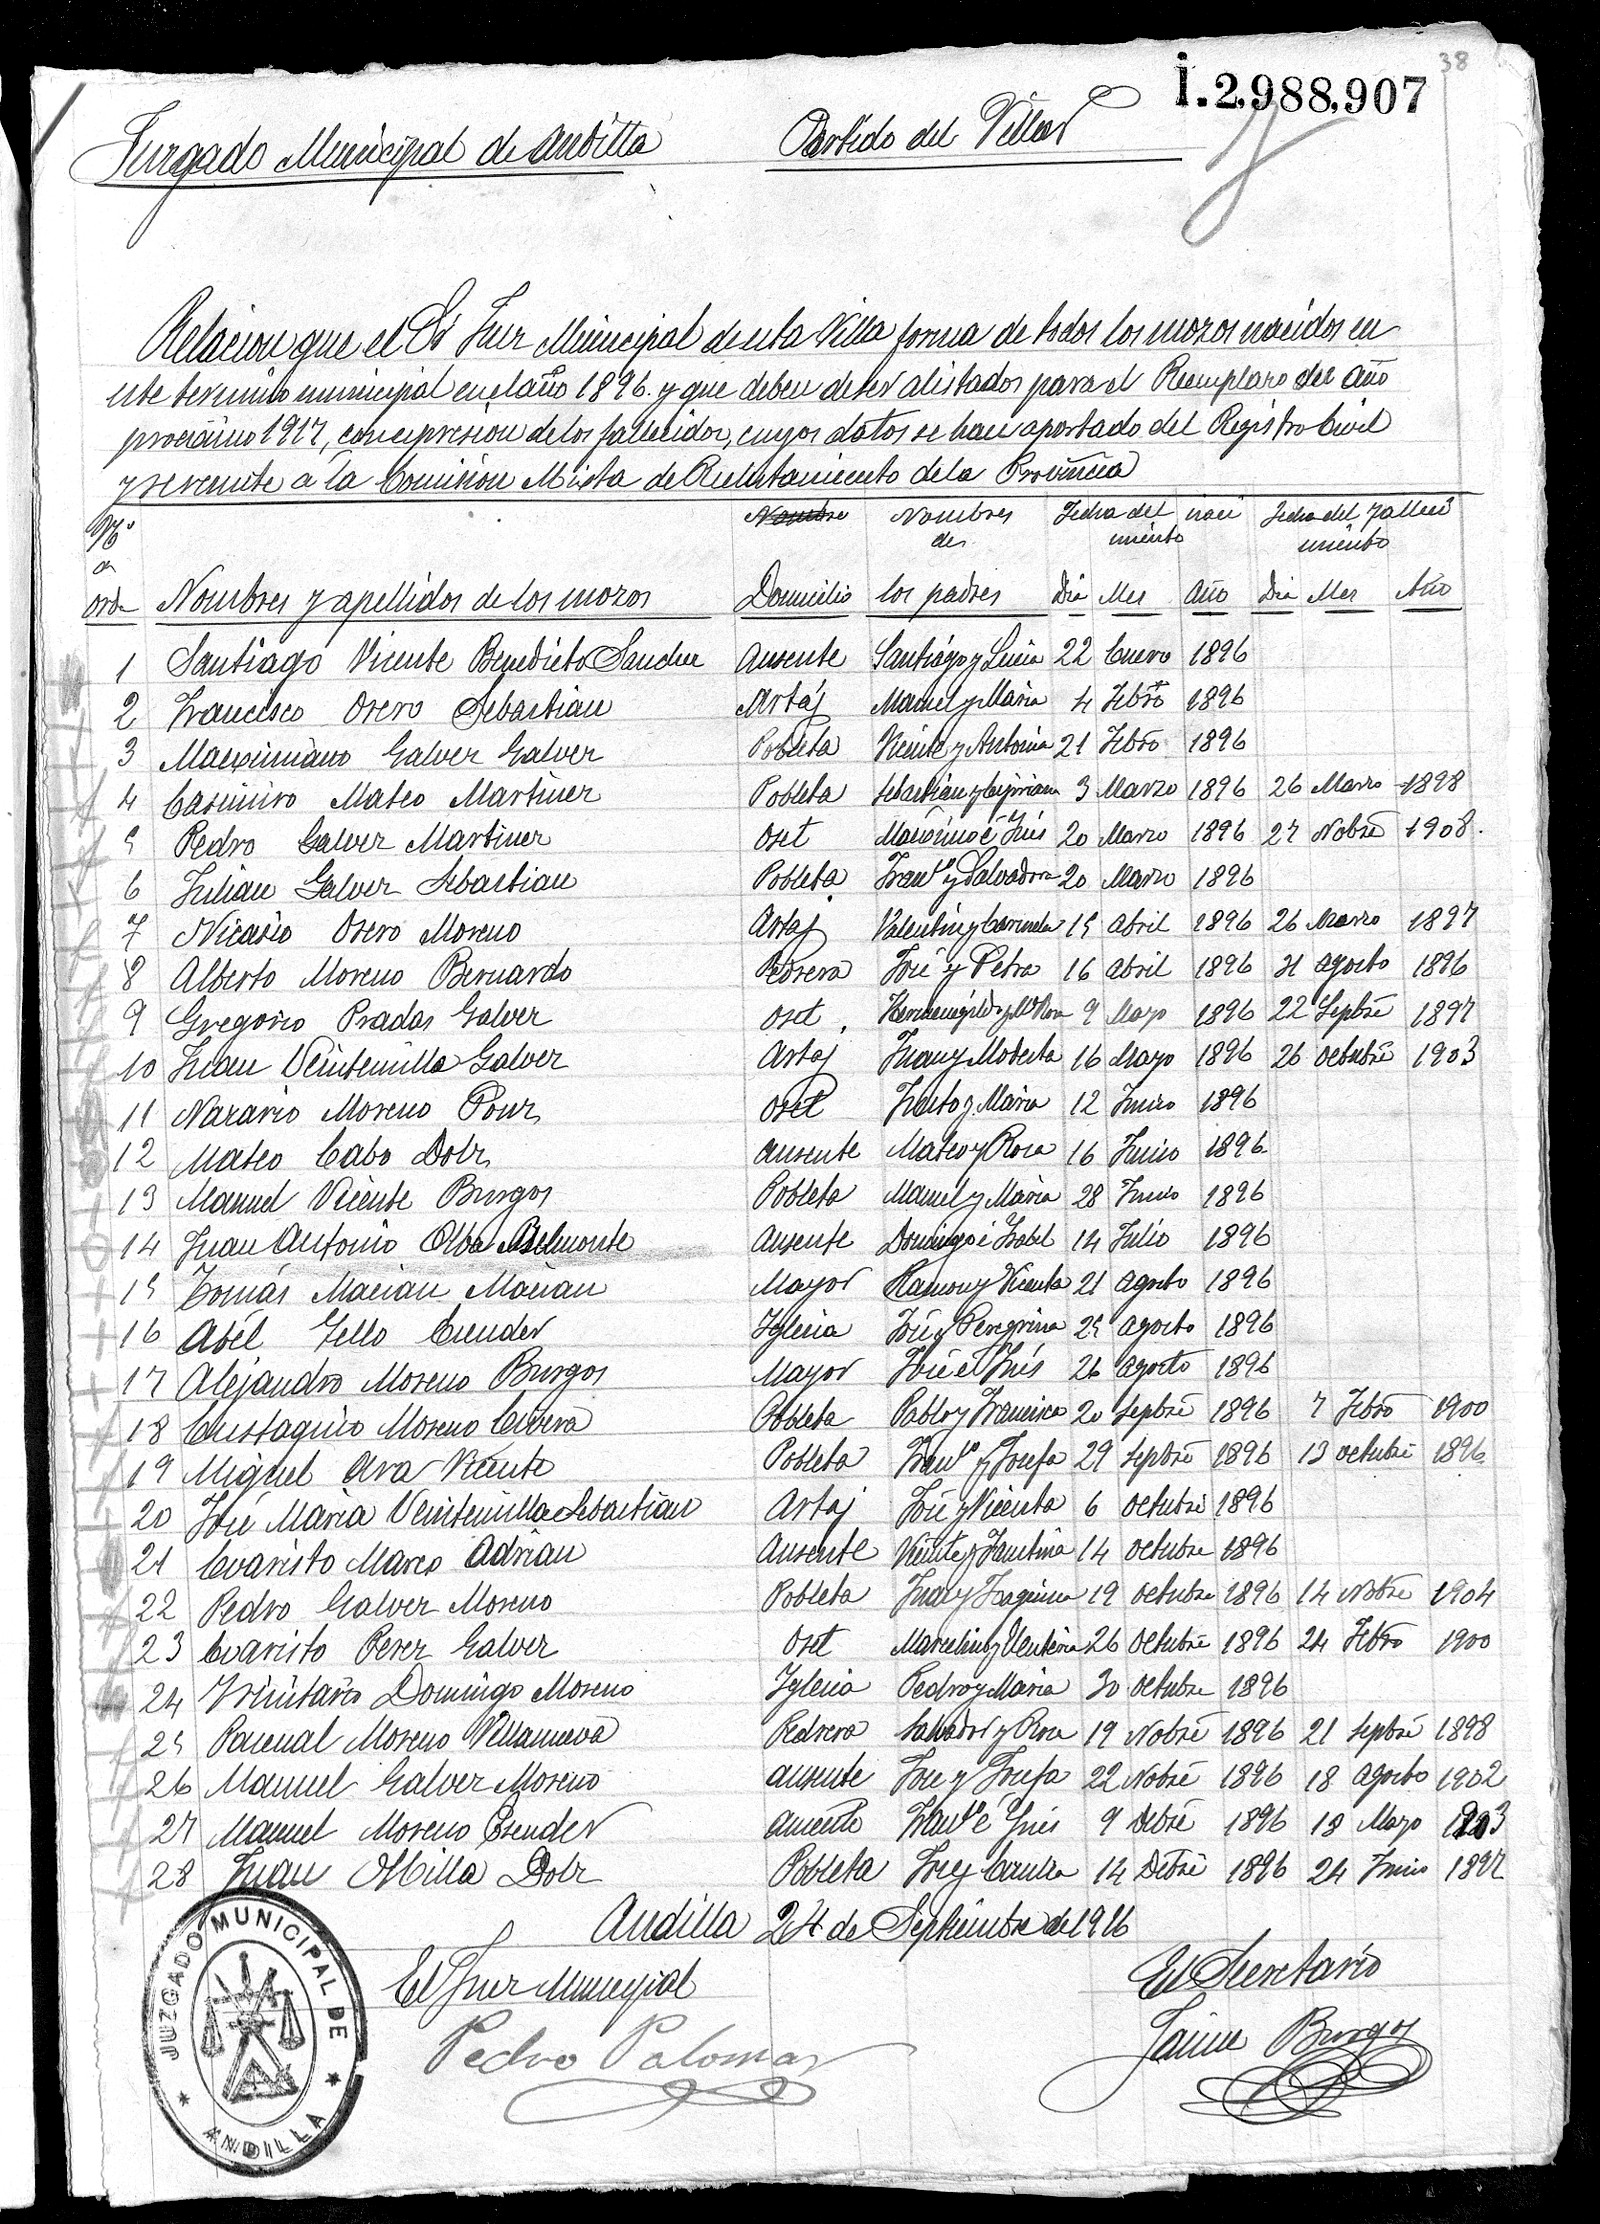 38
I.2,988,907
Juzgado Municipal de Andilla Partido del Villar
Relacion que el Sr Juez Municipal de esta Villa forma de todos los mozos nacidos en
este termino municipal en el año 1896 y que deben de ser alistados para el Reemplazo del año
proximo 1917, con expresion de los fallecidos, cuyos datos se han aportado del Registro Civil
y se remite a la Comision Mixta de Reclutamiento de la Provincia
Nº de orden Nombres y apellidos de los mozos Domicilio Nombres de los padres Fecha del nacimiento Dia Mes Año Fecha del fallecimiento Dia Mes Año
1 Santiago Vicente Benedicto Sanchez Ausente Santiago y Lucia 22 Enero 1896
2 Francisco Osero Sebastian Artaj Manuel y Maria 4 Febro 1896
3 Maximiano Galvez Galvez Pobleta Vicente y Antonia 21 Febro 1896
4 Casimiro Mateo Martinez Pobleta Sebastian y Cipriana 3 Marzo 1896 26 Marzo 1898
5 Pedro Galvez Martinez Oset Maximo é Inés 20 Marzo 1896 27 Nobre 1908.
6 Julian Galvez Sebastian Pobleta Franco y Salvadora 20 Marzo 1896
7 Nicasio Osero Moreno Artaj Valentin y Carmela 15 Abril 1896 26 Marzo 1897
8 Alberto Moreno Bernardo Pedrera José y Petra 16 Abril 1896 31 Agosto 1896
9 Gregorio Pradas Galvez Oset Hermenegildo y Mª Rosa 9 Mayo 1896 22 Septbre 1897
10 Juan Veintemilla Galvez Artaj Juan y Modesta 16 Mayo 1896 26 Octubre 1903
11 Nazario Moreno Ponz Oset Justo y Maria 12 Junio 1896
12 Mateo Cabo Dolz Ausente Mateo y Rosa 16 Junio 1896
13 Manuel Vicente Burgos Pobleta Manuel y Maria 28 Junio 1896
14 Juan Antonio Alba Belmonte Ausente Domingo é Isabel 14 Julio 1896
15 Tomás Macian Macian Mayor Ramon y Vicenta 21 Agosto 1896
16 Abél Tello Cuender Iglesia José y Peregrina 25 Agosto 1896
17 Alejandro Moreno Burgos Mayor José é Inés 26 Agosto 1896
18 Eustaquio Moreno Cervera Pobleta Pablo y Francisca 20 Septbre 1896 7 Febro 1900
19 Miguel Ara Vicente Pobleta Franco y Josefa 29 Septbre 1896 13 Octubre 1896
20 José Maria Veintemilla Sebastian Artaj José y Vicenta 6 Octubre 1896
21 Evaristo Marco Adrian Ausente Vicente y Faustina 14 Octubre 1896
22 Pedro Galvez Moreno Pobleta Juan y Joaquina 19 Octubre 1896 14 Nobre 1904
23 Evaristo Perez Galvez Oset Marcelino y Eleuteria 26 Octubre 1896 24 Febro 1900
24 Trinitario Domingo Moreno Iglesia Pedro y Maria 30 Octubre 1896
25 Pascual Moreno Villanueva Pedrera Salvador y Rosa 19 Nobre 1896 21 Septbre 1898
26 Manuel Galvez Moreno Ausente José y Josefa 22 Nobre 1896 18 Agosto 1902
27 Manuel Moreno Esender Ausente Franco é Inés 9 Debre 1896 18 Mayo 1903
28 Juan Milla Dolz Pobleta José y 14 Debre 1896 24 Junio 1897
Andilla 24 de Septiembre de 1916
El Juez Municipal El Secretario
Pedro Palomar Jaime Burgos
JUZGADO MUNICIPAL DE
ANDILLA